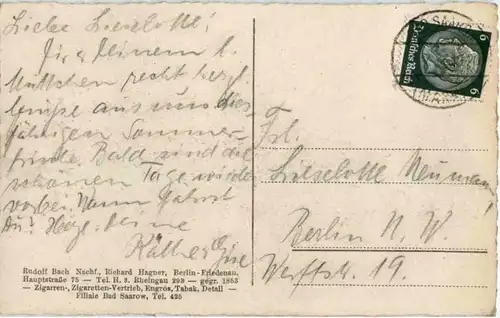 Liebe Lieselotte!
Dir u. Deinem l.
Muttchen recht herzl.
Grüsse aus uns. dies-
jährigen Sommer-
frische. Bald sind die
schönen Tage wieder
vorbei. Wann fährst
Du? Herzl. Deine
Käthe
Frl.
Lieselotte Neumann
Berlin N. W.
Werftstr. 19.
Deutsches Reich
6 6
Rudolf Bach Nachf., Richard Hagner, Berlin-Friedenau,
Hauptstraße 75 — Tel. H. 3. Rheingau 293 — gegr. 1863
— Zigarren-, Zigaretten-Vertrieb, Engros, Tabak, Detail —
Filiale Bad Saarow, Tel. 425